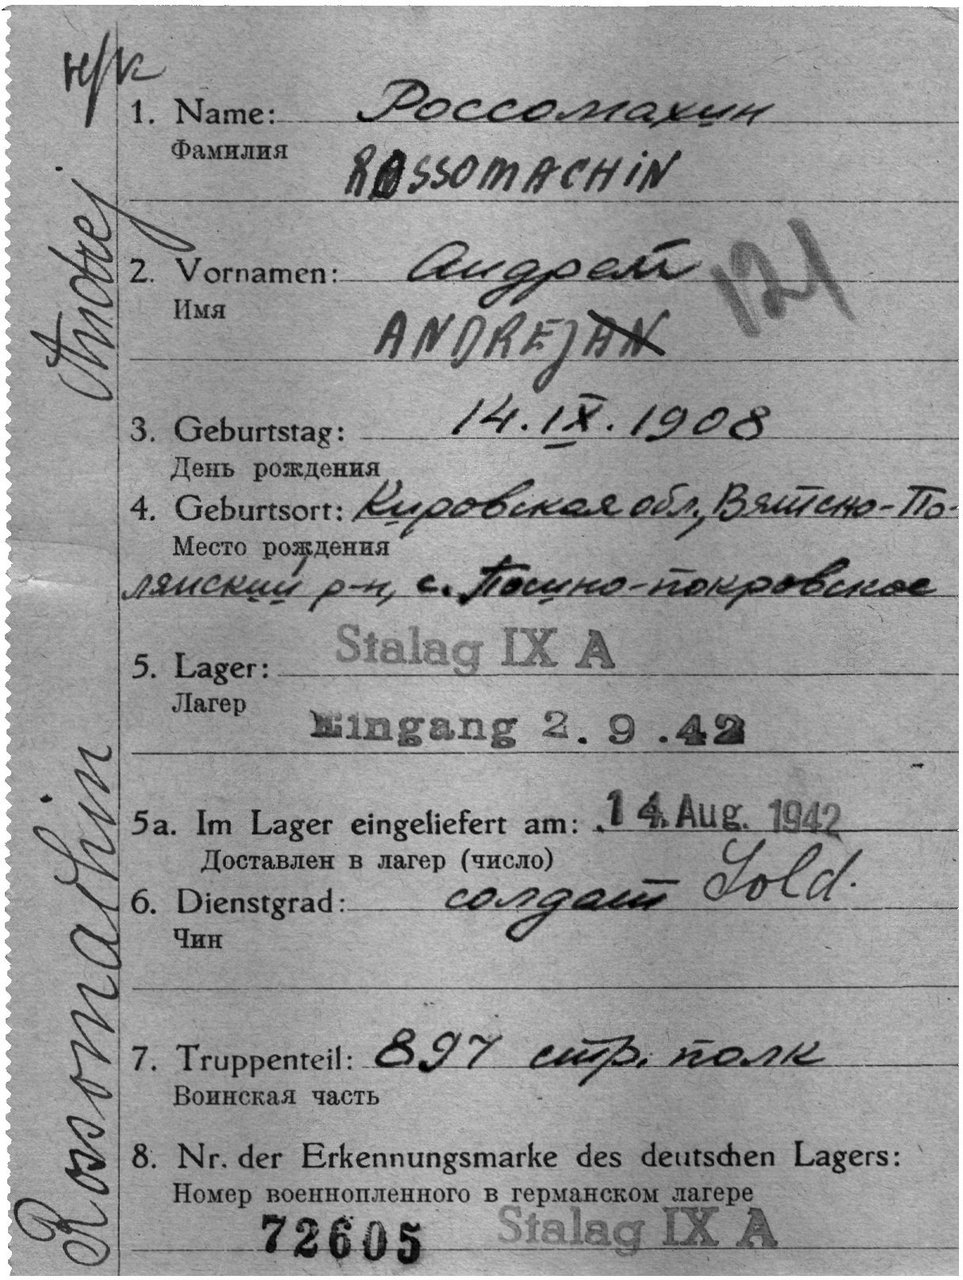 н/к
1. Name: Россомахин
Фамилия
ROSSOMACHiN
2. Vornamen: Андрей
Имя
121
ANDREJAN
3. Geburtstag: 14.IX.1908
День рождения
4. Geburtsort: Кировская обл., Вятско-По-
Место рождения
лянский р-н, с. -покровское
5. Lager: Stalag IX A
Лагер
Eingang 2.9.42
5a. Im Lager eingeliefert am: .14. Aug. 1942
Доставлен в лагер (число)
6. Dienstgrad: солдат Sold.
Чин
7. Truppenteil: 897 стр. полк
Воинская часть
8. Nr. der Erkennungsmarke des deutschen Lagers:
Номер военнопленного в германском лагере
72605 Stalag IX A
Rossomachin Andrej